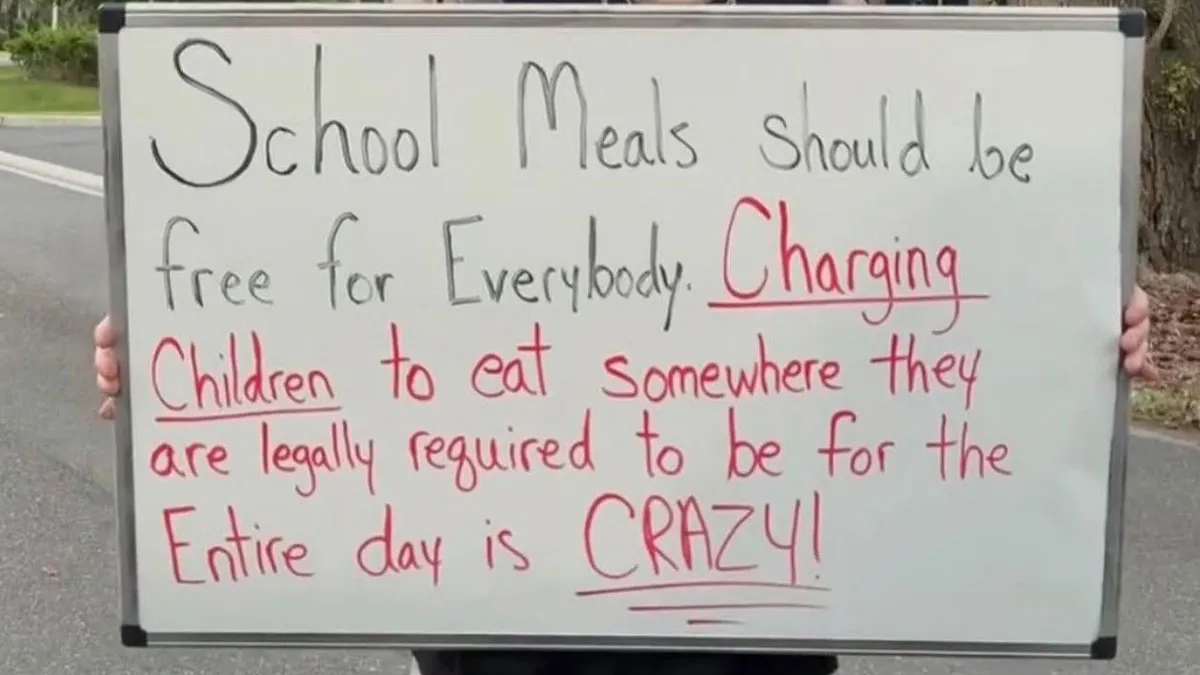 School Meals should be
free for Everybody. Charging
Children to eat somewhere they
are legally required to be for the
Entire day is CRAZY!